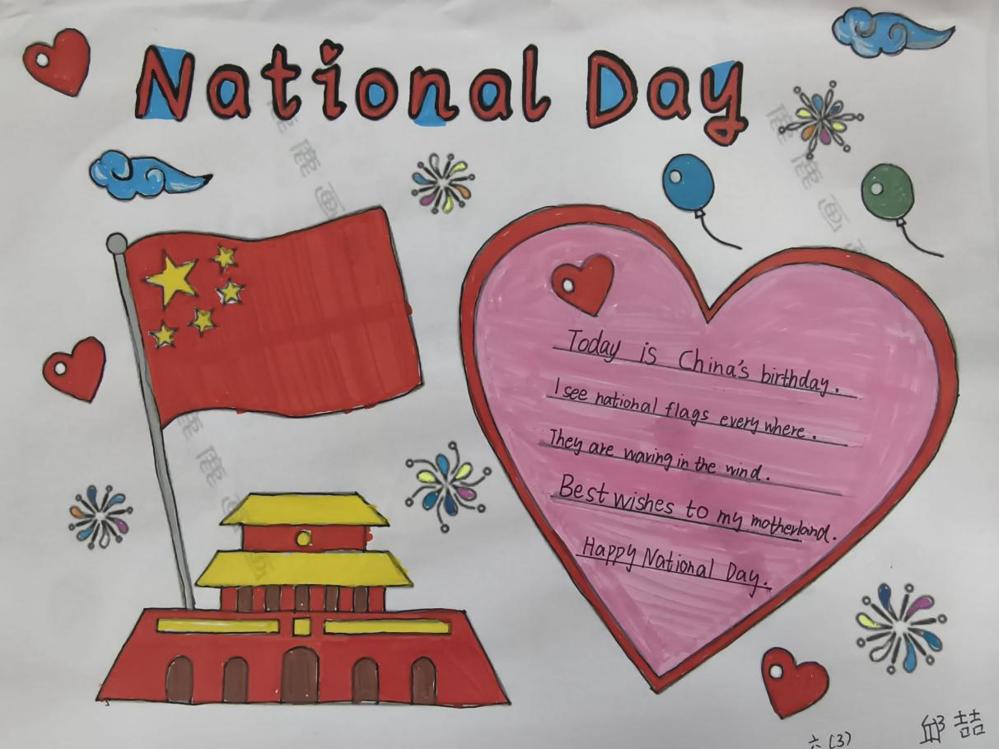 National Day
Today is China's birthday.
I see national flags everywhere.
They are waving in the wind.
Best wishes to my motherland.
Happy National Day.
六(3)
邱喆